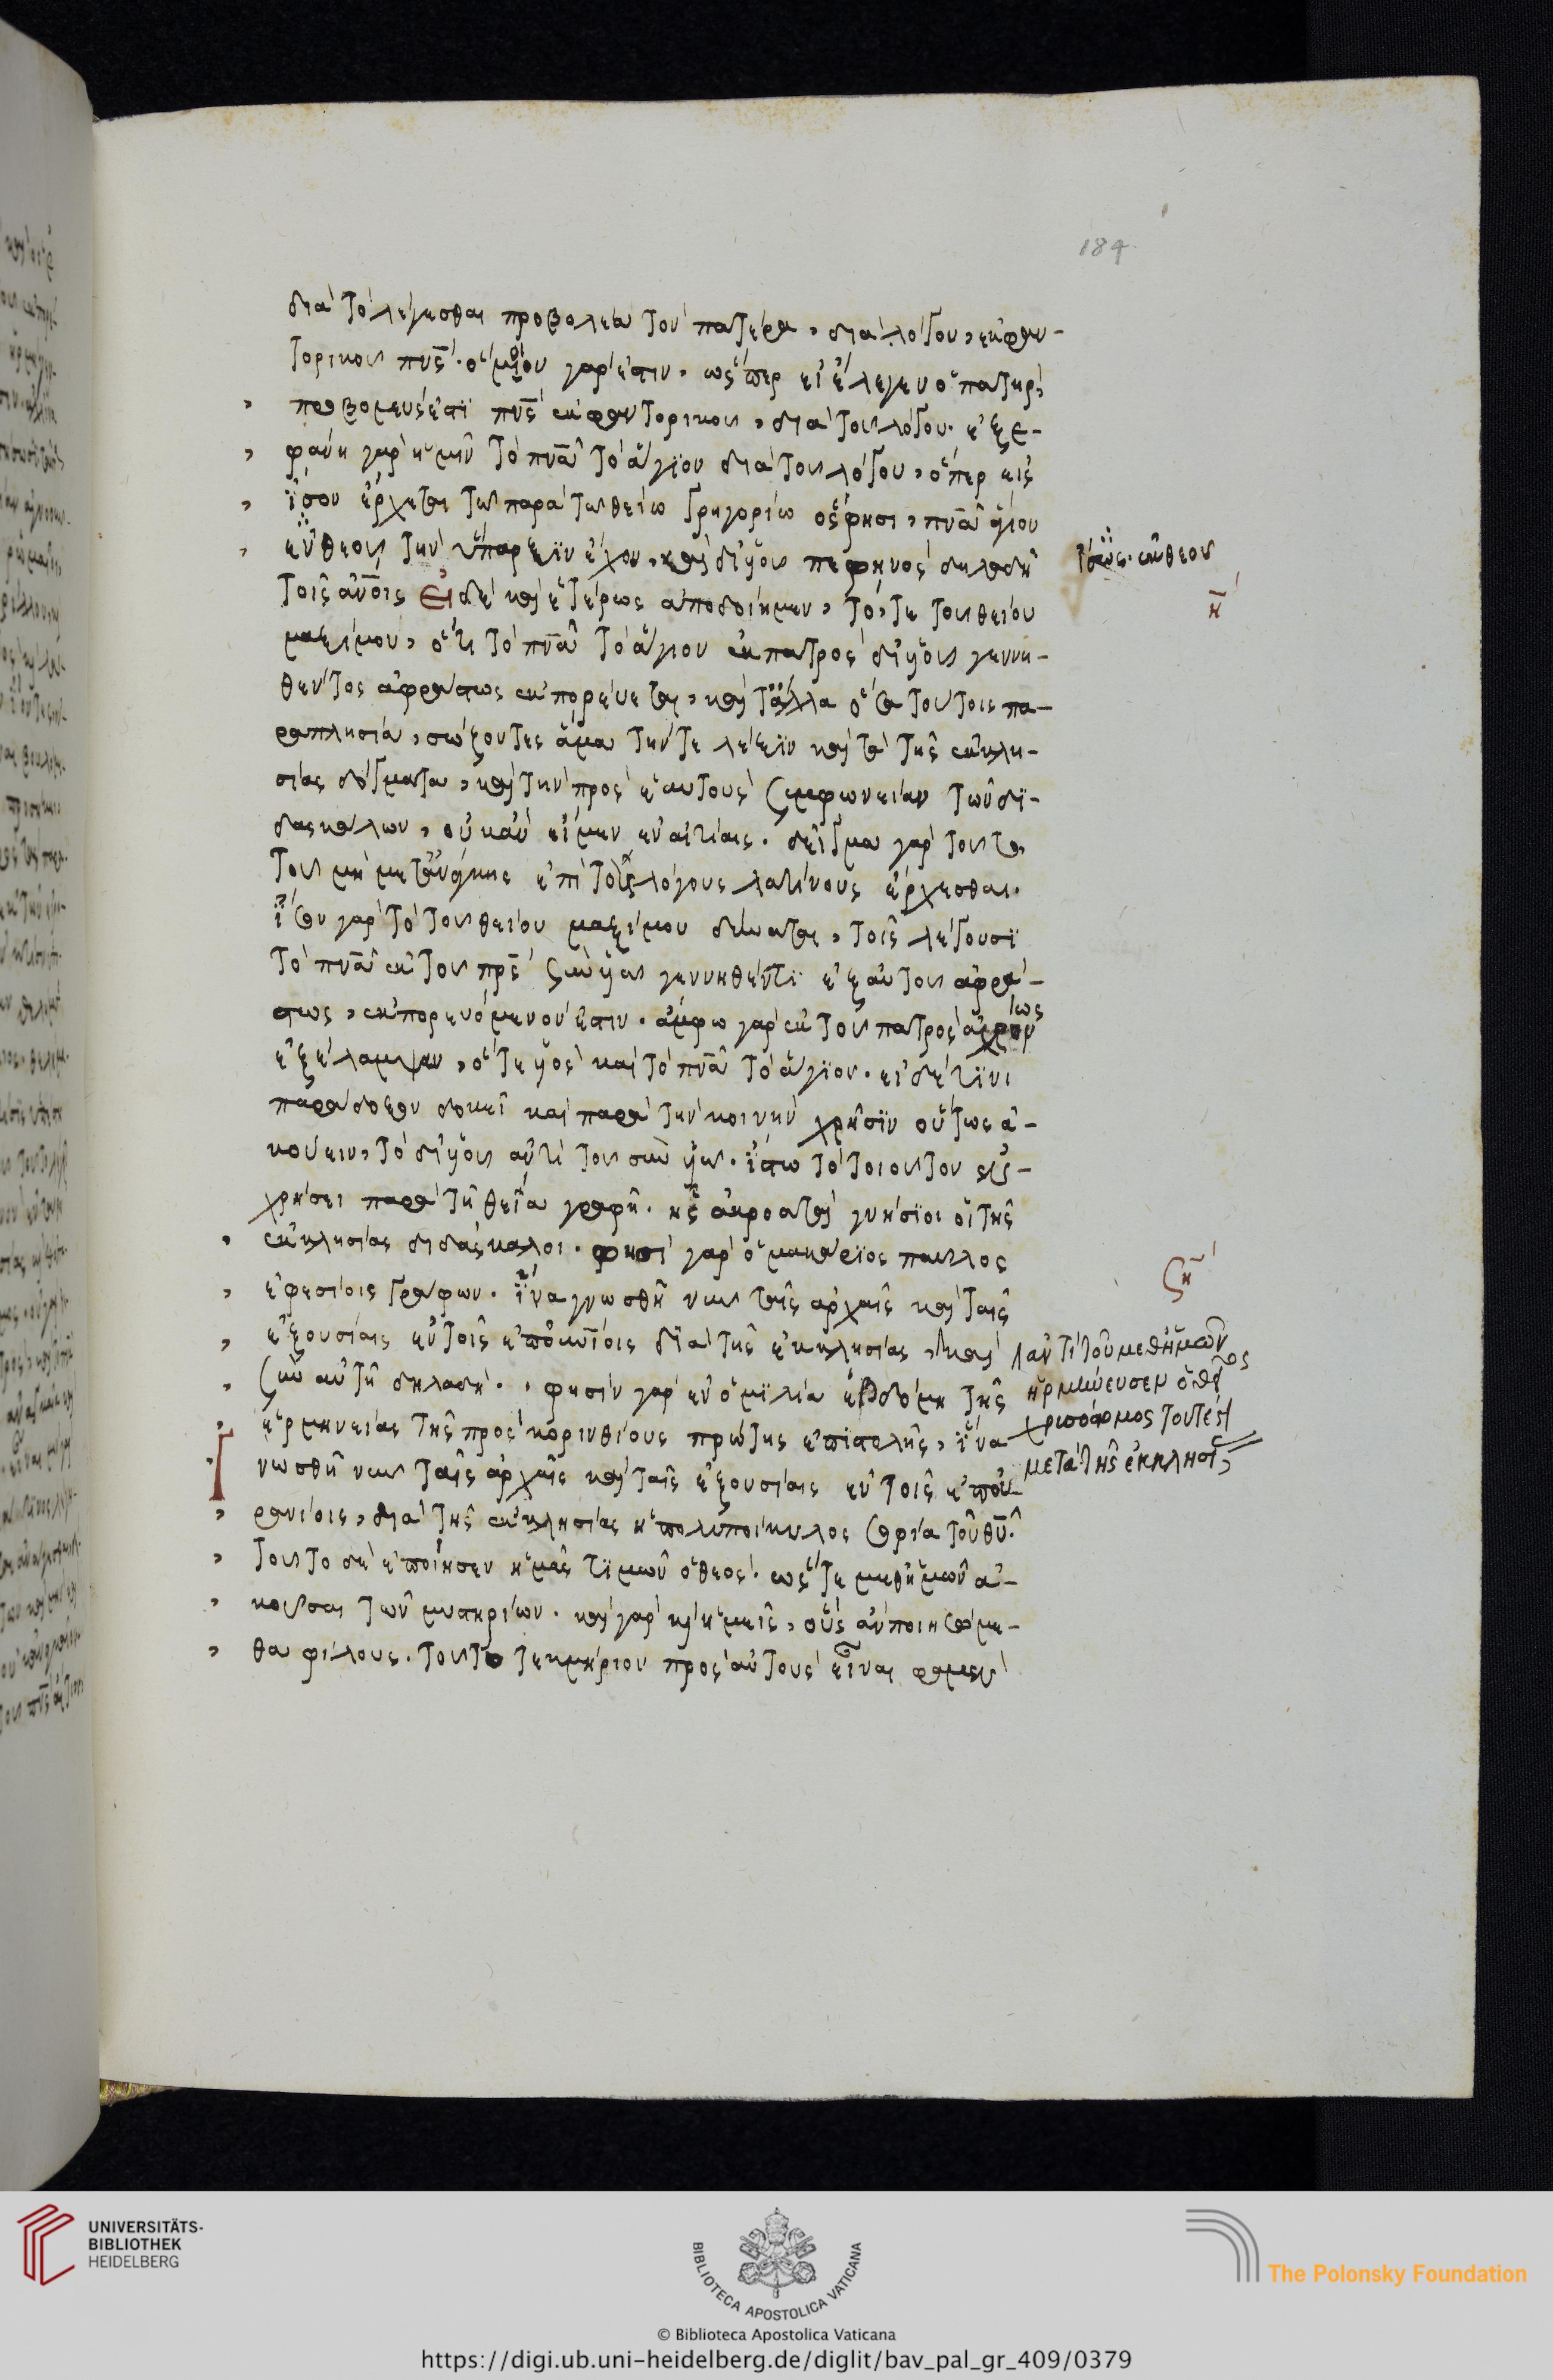 184
διὰ τὸ λέγεσθαι προβολέα τὸν πατέρα, διὰ λόγου, ἐκφαν-
τορικοῦ πν̅ς. ὅμοιον γάρ ἐστιν, ὥσπερ εἰ ἔλεγεν ὁ πατὴρ,
προβολεύς ἐστϊ πν̅ς ἐκφαντορικοῦ, διὰ τοῦ λόγου. ἐξε-
φάνη γὰρ ἡμῖν τὸ πν̅α τὸ ἅγϊον διὰ τοῦ λόγου, ὅπερ εἰς
ἴσον ἔρχεται τῶ παρὰ τῶ θείω γρηγορίω ὅς φησι, πν̅α ἅγιον
ἐν θεοῦ τὴν ὕπαρξϊν ἔχον, καὶ δι' υἱοῦ πεφηνὸς δηλαδὴ
τοῖς ἀν̅οις Εἰ δὲ καὶ ἑτέρως ἀποδοίημεν, τό, τε τοῦ θείου
μαξίμου, ὅτι τὸ πν̅α τὸ ἅγιον ἐκ πατρὸς δι' υἱοῦ γεννη-
θέντος ἀφράστως ἐκπορεύεται, καὶ τἄλλα ὅσα τούτοις πα-
ραπλησία, σώζοντες ἅμα τήν τε λέξϊν καὶ τὰ τῆς ἐκκλη-
σίας δόγματα, καὶ τὴν πρὸς ἑαυτοὺς συμφωνείαν τῶν δϊ-
δασκάλων, οὐκ ἂν εἴημεν ἐν αἰτίαις. δεῖγμα γὰρ τοῦτο
τοῦ μὴ μετ' ἀνάγκης ἐπὶ τοὺς λόγους λατίνους ἔρχεσθαι.
ἴσον γὰρ τὸ τοῦ θείου μαξίμου δύναται, τοῖς λέγουσϊ
τὸ πν̅α ἐκ τοῦ πρ̅ς σὺν υἱῶ γεννηθέντϊ ἐξ αὐτοῦ ἀφρά-
στως, ἐκπορευόμενόν ἐστιν. ἄμφω γὰρ ἐκ τοῦ πατρὸς ἀχρόνως
ἐξέλαμψαν, ὅ τε υἱὸς καὶ τὸ πν̅α τὸ ἅγϊον. εἰ δέ τϊνι
παράδοξον δοκεῖ καὶ παρὰ τὴν κοινὴν χρῆσϊν οὕτως ἀ-
κούειν, τὸ δι' υἱοῦ ἀντὶ τοῦ σὺν υἱῶ. ἴστω τὸ τοιοῦτον ἐν
χρήσει παρὰ τῆ θεία γραφῆ. ἧς ἀκροαταὶ γνήσϊοι οἱ τῆς
ἐκκλησίας διδάσκαλοι. φησὶ γὰρ ὁ μακάρϊος παῦλος
ἐφεσίοις γράφων. ἵνα γνωσθῆ νῦν ταῖς ἀρχαῖς καὶ ταῖς
ἐξουσίαις ἐν τοῖς ἐπουνίοις διὰ τῆς ἐκκλησίας, καὶ
σὺν αὐτῆ δηλαδή., φησὶν γὰρ ἐν ὁμϊλία ἑβδόμη τῆς
ἑρμηνείας τῆς πρὸς κορινθίους πρώτης ἐπϊστολῆς, ἵνα
νωσθῆ νῦν ταῖς ἀρχαῖς καὶ ταῖς ἐξουσίαις ἐν τοῖς ἐπου-
ρανίοις, διὰ τῆς ἐκκλησίας ἡ πολυποίκιλος σοφία τοῦ θυ̅.
τοῦτο δὲ ἐποίησεν ἡμᾶς τϊμῶν ὁ θεὸς. ὥστε μεθ' ἡμῶν ἀ-
κοῦσαι τῶν μυστηρίων. καὶ γὰρ καὶ ἡμεῖς, οὓς ἂν ποιησώμε-
θα φίλους. τοῦτο τεκμήριον πρὸς αὐτοὺς εἶναι φαμεν
ἴσως. ἐκ θεοῦ
η̅
ση
ἀντὶ τοῦ μεθ' ἡμῶν
ἡρμήνευσεν ὁ θεῖος
χρυσόστομος τουτέστι
μετὰ τῆς ἐκκλησίας
UNIVERSITÄTS-
BIBLIOTHEK
HEIDELBERG
BIBLIOTECA APOSTOLICA VATICANA
The Polonsky Foundation
© Biblioteca Apostolica Vaticana
https://digi.ub.uni-heidelberg.de/diglit/bav_pal_gr_409/0379